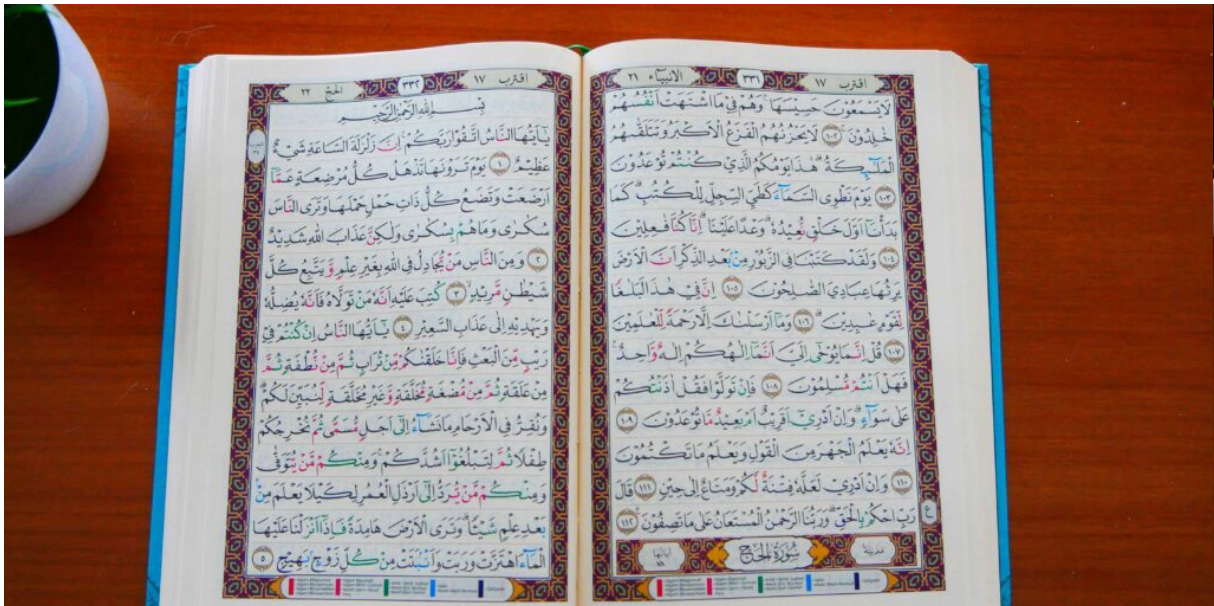 اقترب ١٧
٣٣١
الانبيآء ٢١
لَا يَسْمَعُوْنَ حَسِيْسَهَاۚ وَهُمْ فِيْ مَا اشْتَهَتْ اَنْفُسُهُمْ
خٰلِدُوْنَ ۚ ﴿١٠٢﴾ لَا يَحْزُنُهُمُ الْفَزَعُ الْاَكْبَرُ وَتَتَلَقّٰىهُمُ
الْمَلٰۤىِٕكَةُۗ هٰذَا يَوْمُكُمُ الَّذِيْ كُنْتُمْ تُوْعَدُوْنَ
﴿١٠٣﴾ يَوْمَ نَطْوِى السَّمَاۤءَ كَطَيِّ السِّجِلِّ لِلْكُتُبِۗ كَمَا
بَدَأْنَآ اَوَّلَ خَلْقٍ نُّعِيْدُهٗۗ وَعْدًا عَلَيْنَاۗ اِنَّا كُنَّا فٰعِلِيْنَ
﴿١٠٤﴾ وَلَقَدْ كَتَبْنَا فِى الزَّبُوْرِ مِنْۢ بَعْدِ الذِّكْرِ اَنَّ الْاَرْضَ
يَرِثُهَا عِبَادِيَ الصّٰلِحُوْنَ ﴿١٠٥﴾ اِنَّ فِيْ هٰذَا لَبَلٰغًا
لِّقَوْمٍ عٰبِدِيْنَۗ ﴿١٠٦﴾ وَمَآ اَرْسَلْنٰكَ اِلَّا رَحْمَةً لِّلْعٰلَمِيْنَ
﴿١٠٧﴾ قُلْ اِنَّمَا يُوْحٰٓى اِلَيَّ اَنَّمَآ اِلٰهُكُمْ اِلٰهٌ وَّاحِدٌۚ
فَهَلْ اَنْتُمْ مُّسْلِمُوْنَ ﴿١٠٨﴾ فَاِنْ تَوَلَّوْا فَقُلْ اٰذَنْتُكُمْ
عَلٰى سَوَاۤءٍۗ وَاِنْ اَدْرِيْٓ اَقَرِيْبٌ اَمْ بَعِيْدٌ مَّا تُوْعَدُوْنَ ﴿١٠٩﴾
اِنَّهٗ يَعْلَمُ الْجَهْرَ مِنَ الْقَوْلِ وَيَعْلَمُ مَا تَكْتُمُوْنَ
﴿١١٠﴾ وَاِنْ اَدْرِيْ لَعَلَّهٗ فِتْنَةٌ لَّكُمْ وَمَتَاعٌ اِلٰى حِيْنٍ ﴿١١١﴾ قَالَ
رَبِّ احْكُمْ بِالْحَقِّۗ وَرَبُّنَا الرَّحْمٰنُ الْمُسْتَعَانُ عَلٰى مَا تَصِفُوْنَ ﴿١١٢﴾
ع
مدنية سُوْرَةُ الْحَجِّ اٰياتها ٧٨
اقترب ١٧
٣٣٢
الحج ٢٢
بِسْمِ اللّٰهِ الرَّحْمٰنِ الرَّحِيْمِ
يٰٓاَيُّهَا النَّاسُ اتَّقُوْا رَبَّكُمْۚ اِنَّ زَلْزَلَةَ السَّاعَةِ شَيْءٌ
عَظِيْمٌ ﴿١﴾ يَوْمَ تَرَوْنَهَا تَذْهَلُ كُلُّ مُرْضِعَةٍ عَمَّآ
اَرْضَعَتْ وَتَضَعُ كُلُّ ذَاتِ حَمْلٍ حَمْلَهَا وَتَرَى النَّاسَ
سُكٰرٰى وَمَا هُمْ بِسُكٰرٰى وَلٰكِنَّ عَذَابَ اللّٰهِ شَدِيْدٌ
﴿٢﴾ وَمِنَ النَّاسِ مَنْ يُّجَادِلُ فِى اللّٰهِ بِغَيْرِ عِلْمٍ وَّيَتَّبِعُ كُلَّ
شَيْطٰنٍ مَّرِيْدٍۙ ﴿٣﴾ كُتِبَ عَلَيْهِ اَنَّهٗ مَنْ تَوَلَّاهُ فَاَنَّهٗ يُضِلُّهٗ
وَيَهْدِيْهِ اِلٰى عَذَابِ السَّعِيْرِ ﴿٤﴾ يٰٓاَيُّهَا النَّاسُ اِنْ كُنْتُمْ فِيْ
رَيْبٍ مِّنَ الْبَعْثِ فَاِنَّا خَلَقْنٰكُمْ مِّنْ تُرَابٍ ثُمَّ مِنْ نُّطْفَةٍ ثُمَّ
مِنْ عَلَقَةٍ ثُمَّ مِنْ مُّضْغَةٍ مُّخَلَّقَةٍ وَّغَيْرِ مُخَلَّقَةٍ لِّنُبَيِّنَ لَكُمْۗ
وَنُقِرُّ فِى الْاَرْحَامِ مَا نَشَاۤءُ اِلٰٓى اَجَلٍ مُّسَمًّى ثُمَّ نُخْرِجُكُمْ
طِفْلًا ثُمَّ لِتَبْلُغُوْٓا اَشُدَّكُمْۚ وَمِنْكُمْ مَّنْ يُّتَوَفّٰى
وَمِنْكُمْ مَّنْ يُّرَدُّ اِلٰٓى اَرْذَلِ الْعُمُرِ لِكَيْلَا يَعْلَمَ مِنْۢ
بَعْدِ عِلْمٍ شَيْـًٔاۗ وَتَرَى الْاَرْضَ هَامِدَةً فَاِذَآ اَنْزَلْنَا عَلَيْهَا
الْمَاۤءَ اهْتَزَّتْ وَرَبَتْ وَاَنْۢبَتَتْ مِنْ كُلِّ زَوْجٍۢ بَهِيْجٍ ﴿٥﴾